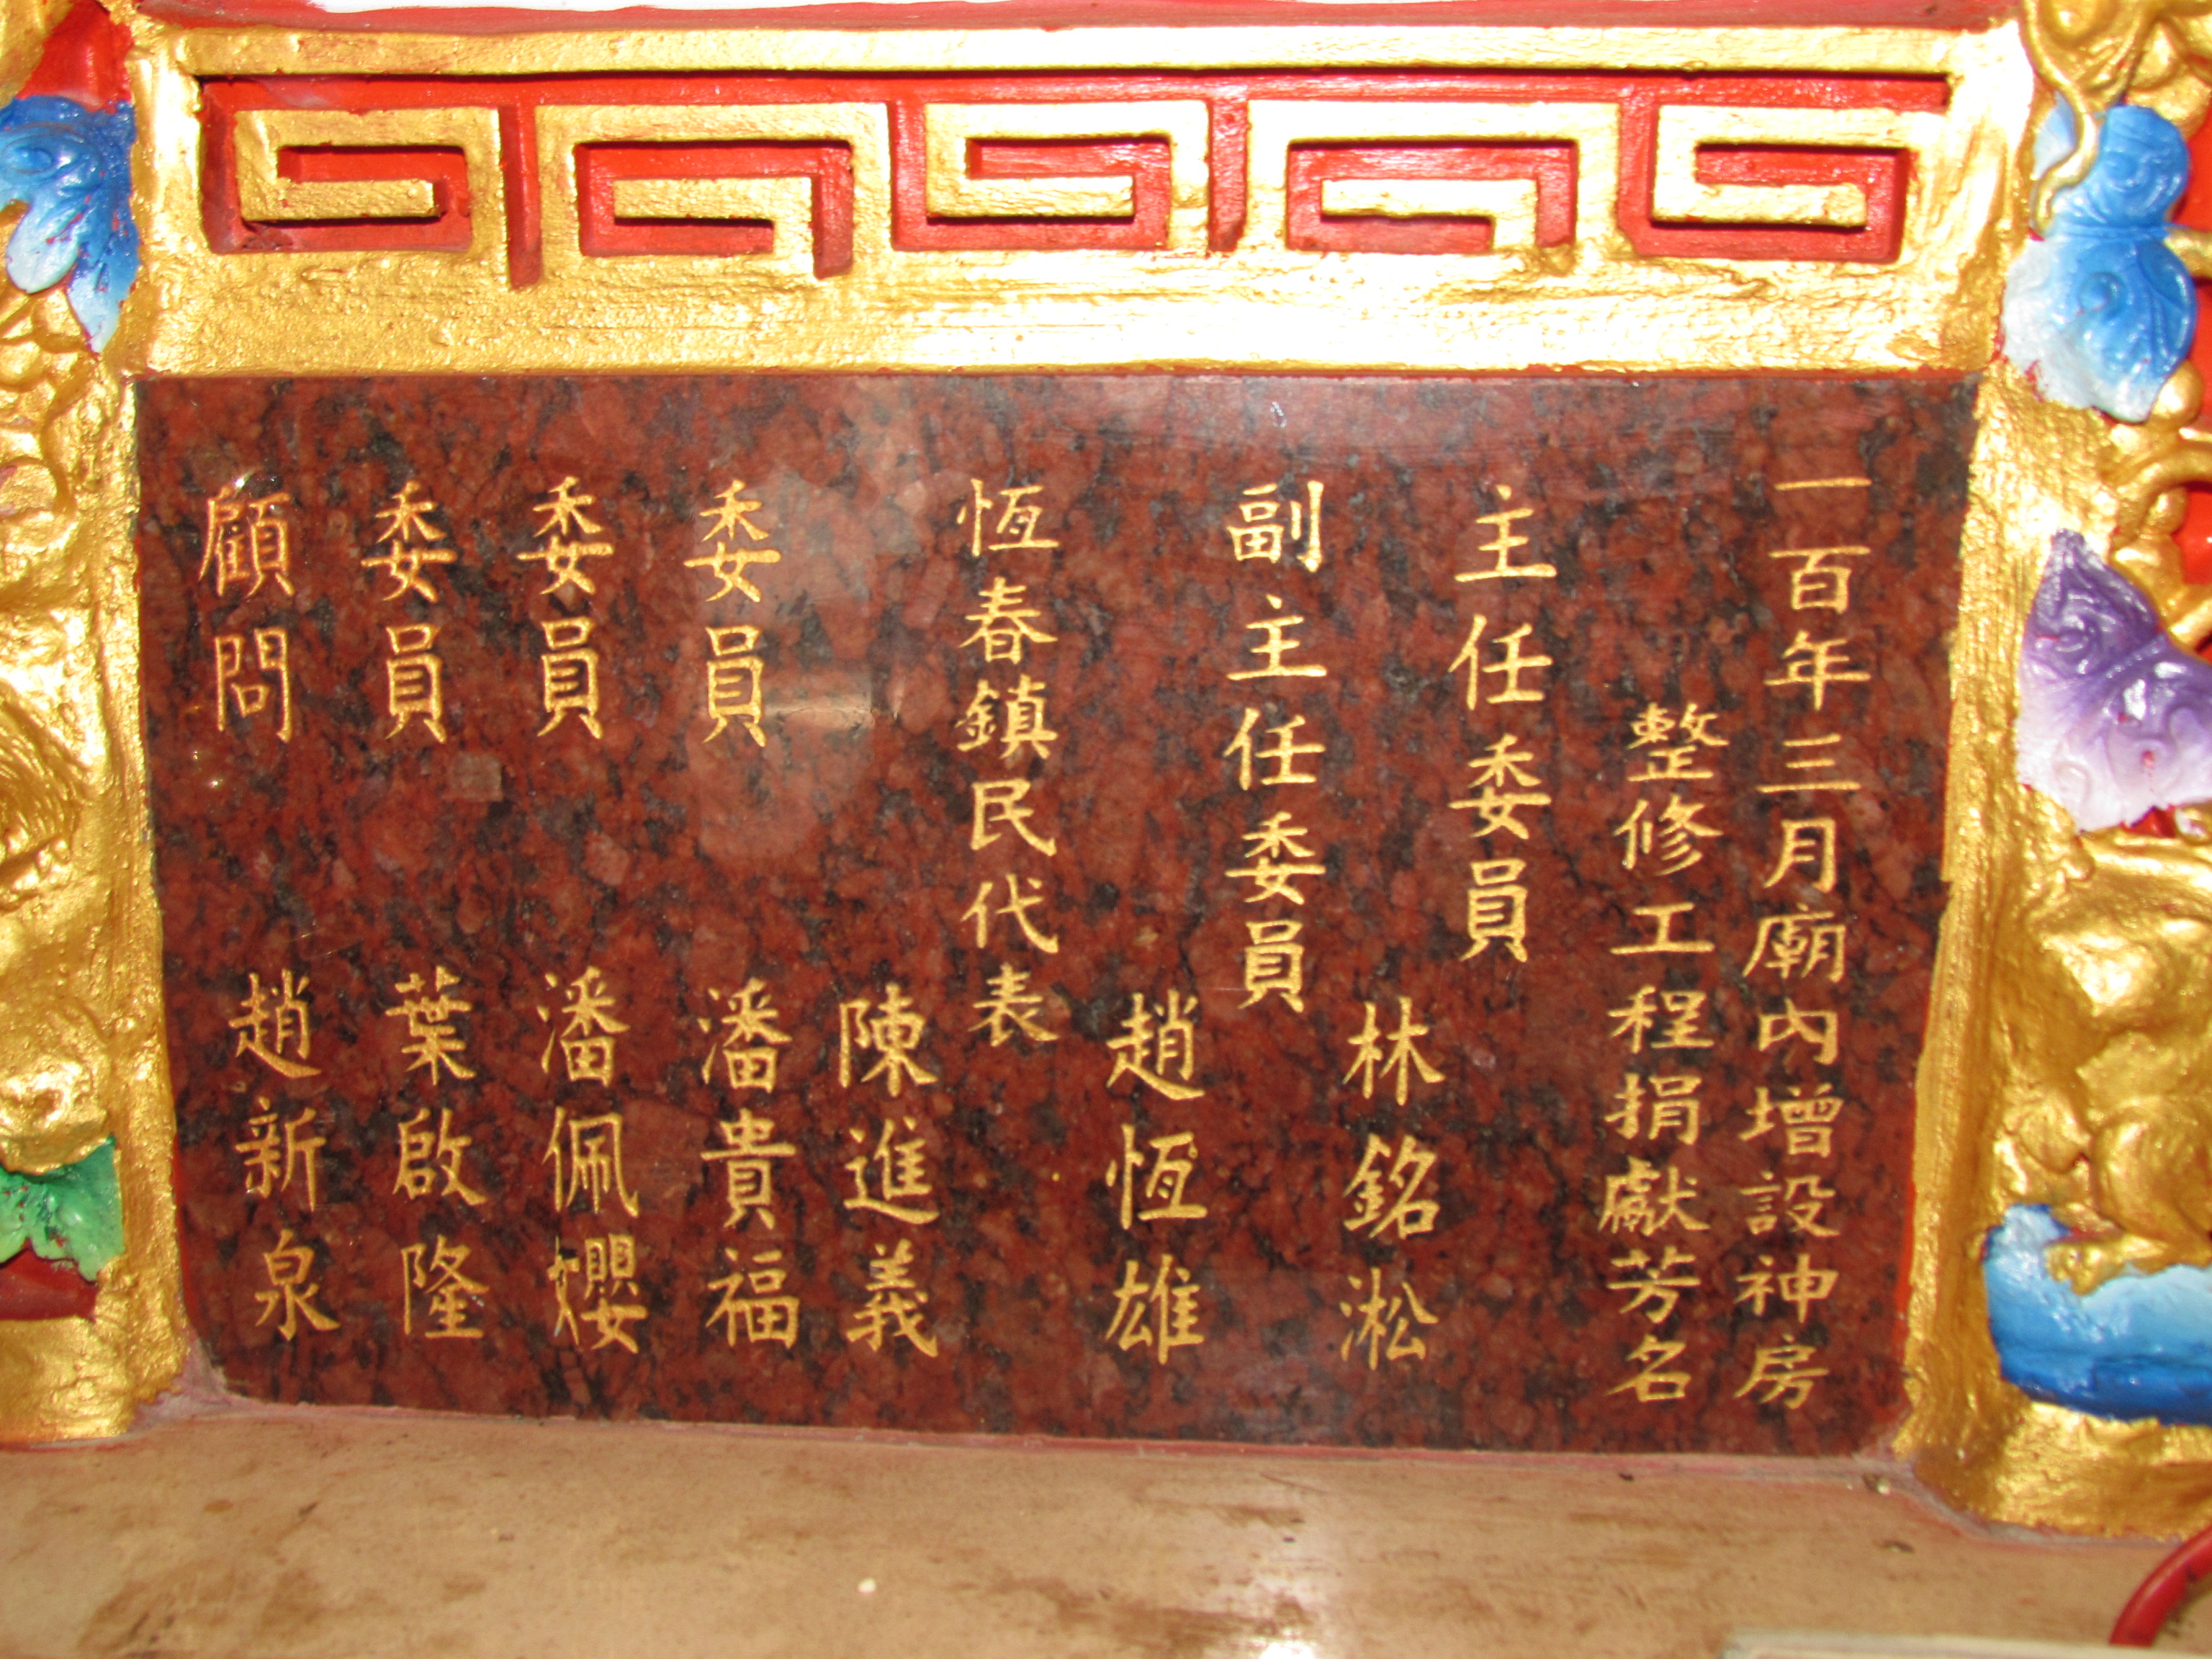 一百年三月廟內增設神房
整修工程捐獻芳名
主任委員
林銘淞
副主任委員
趙恆雄
恆春鎮民代表
陳進義
委員 潘貴福
委員 潘佩孆
委員 葉啟隆
顧問 趙新泉